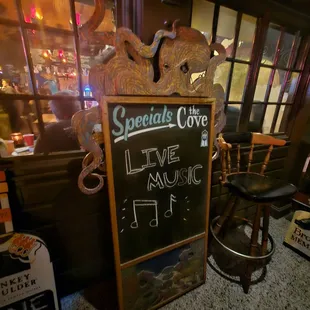 Specials the
Cove
LIVE
MUSIC
NKEY
ULDER